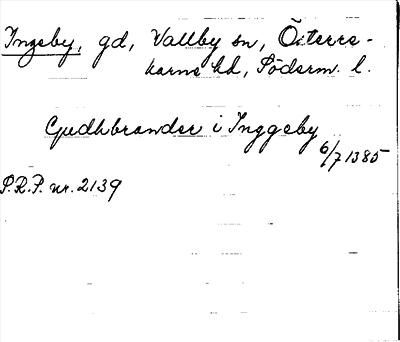 Ingeby, gd, Vallby sn, Österre-
karne hd, Söderm. l.
Gudhbrander i Inggeby
6/7 1385
S.R.P. nr. 2139